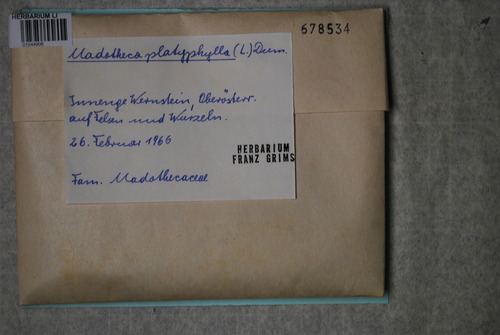 HERBARIUM LI
678534
Madotheca platyphylla (L.) Dum.
Innenge Wernstein, Oberösterr.
auf Felsen und Wurzeln.
26. Februar 1966
HERBARIUM
FRANZ GRIMS
Fam. Madothecaceae